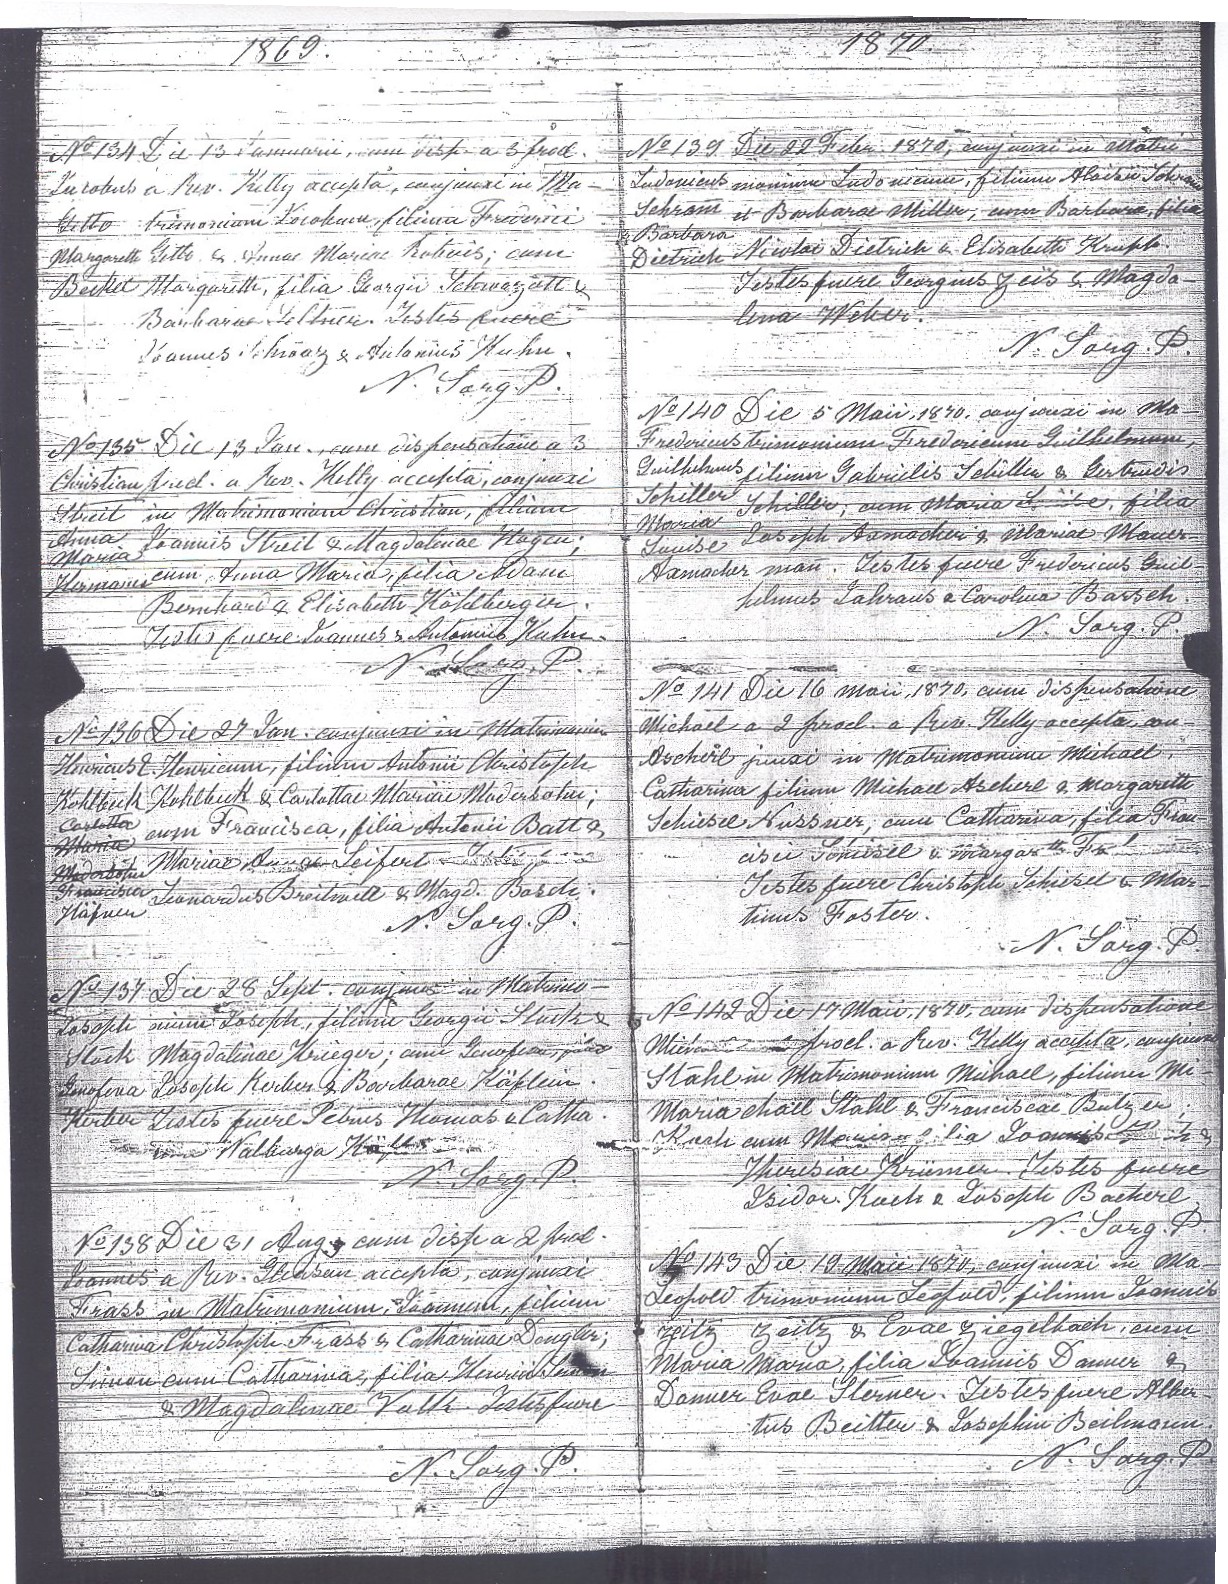 1869.
No 134 Die 13 Januarii, cum disp. a 3 procl.
Jacobus a Rev. Kelly accepta, conjunxi in Ma-
Gitto trimonium Jacobum, filium Frederici
Margareth Gitto & Annae Mariae ; cum
Becket Margareth, filia Georgii &
Barbarae . Testes fuere
Joannes Schwarz & Antonius Kuhn.
N. Sorg. P.
No 135 Die 13 Jan., cum dispensatione a 3
Christian procl. a Rev. Kelly accepta, conjunxi
Streit in Matrimonium Christian, filium
Anna Joannis Streit & Magdalenae Hagen;
Maria
Hermann cum Anna Maria, filia Adam
Bernhard & Elisabeth Köhlberger.
Testes fuere Joannes & Antonius Kuhn.
N. Sorg. P.
No 136 Die 27 Jan. conjunxi in Matrimonium
Henricus & Henricum, filium Antonii Christoph
Kohlbeck Kohlbeck & Carlottae Mariae Maderbotin;
Carlotta cum Francisca, filia Antonii Batt &
Maria
Mariae Leifert
Francisca Leonardus Breitwell & Magd. Bosch.
Häfner
N. Sorg. P.
No 137 Die 28 Sept. conjunxi in Matrimo-
Joseph nium Joseph, filium Georgii Stock &
Stock Magdalenae Krieger; cum Genofeva, filia
Genofeva Joseph Kerber & Barbarae Häflein.
Kerber Testes fuere Petrus Thomas & Catha-
rina Walburga
N. Sorg. P.
No 138 Die 31 Aug, cum disp a 2 procl.
Joannes a Rev. Gleason accepta, conjunxi
Frass in Matrimonium, Joannem, filium
Catharina Christoph Frass & Catharinae Dengler;
Simon cum Catharina, filia Henrici Simon
& Magdalenae Valk. Testes fuere
N. Sorg. P.
1870.
No 139 Die 22 Febr. 1870, conjunxi in Matri-
Ludovicus monium Ludovicum, filium Aloisii Schram
Schram et Barbarae Miller, cum Barbara, filia
& Barbara
Dietrich Nicolai Dietrich & Elisabeth Krupp.
Testes fuere Georgius Zeis & Magda-
lena Weber.
N. Sorg. P.
No 140 Die 5 Maii, 1870, conjunxi in Ma-
Fredericus trimonium Fredericum Guilhelmum,
Guilhelmus filium Gabrielis Schiller & Gertrudis
Schiller Schiller, cum Maria Louise, filia
Maria
Louise Joseph Axmacher & Mariae Mauer-
Axmacher man. Testes fuere Fredericus Guil-
helmus Jahraus & Carolina Barsch.
N. Sorg. P.
No 141 Die 16 Maii, 1870, cum dispensatione
Michael a 2 procl. a Rev. Kelly accepta, con-
Ascherl junxi in Matrimonium Michael,
Catharina filium Michael Ascherl & Margareth
Schiesel Nussner, cum Catharina, filia Fran-
cisci Schiesel &
Testes fuere Christoph Schiesel & Mar-
tinus Foster.
N. Sorg. P.
No 142 Die 17 Maii, 1870, cum dispensatione
procl. a Rev. Kelly accepta, conjunxi
Stahl in Matrimonium Michael, filium Mi-
Maria chael Stahl & Franciscae Butzer;
Koch cum Maria, filia Joannis &
Theresiae Krämer. Testes fuere
Isidor. Koch & Joseph Bacherl.
N. Sorg. P
No 143 Die 19 Maii 1870, conjunxi in Ma-
Leopold trimonium Leopold, filium Joannis
Zeitz Zeitz & Evae Ziegelbach, cum
Maria Maria, filia Joannis Danner &
Danner Evae Sterner. Testes fuere Alber-
tus Beitter & Josephin Beilmann.
N. Sorg. P.